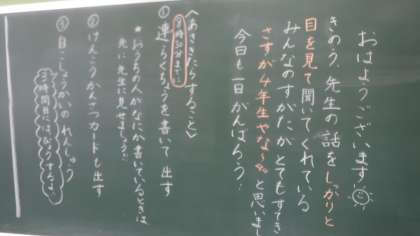 おはようございます!
きのう、先生の話をしっかりと
目を見て聞いてくれている
みんなのすがたがとてもすてき
さすが4年生やな〜と思いまし
今日も一日がんばろう!
〈あさきたらすること〉
8時30分まで
①連らくちょうを書いて出す
*おうちの人がなにか書いているときは
先に先生に見せましょう!
②けんこうかんさつカードも出す
③自こしょうかいのれんしゅう
2時間目にはっぴょうするよ